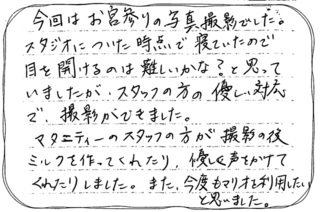 今回はお宮参りの写真撮影でした。
スタジオについた時点で寝ていたので
目を開けるのは難しいかな?と思って
いましたが、スタッフの方の優しい対応
で、撮影ができました。
マタニティーのスタッフの方が撮影の後
ミルクを作ってくれたり、優しく声をかけて
くれたりしました。また、今度もマリオを利用したい
と思いました。